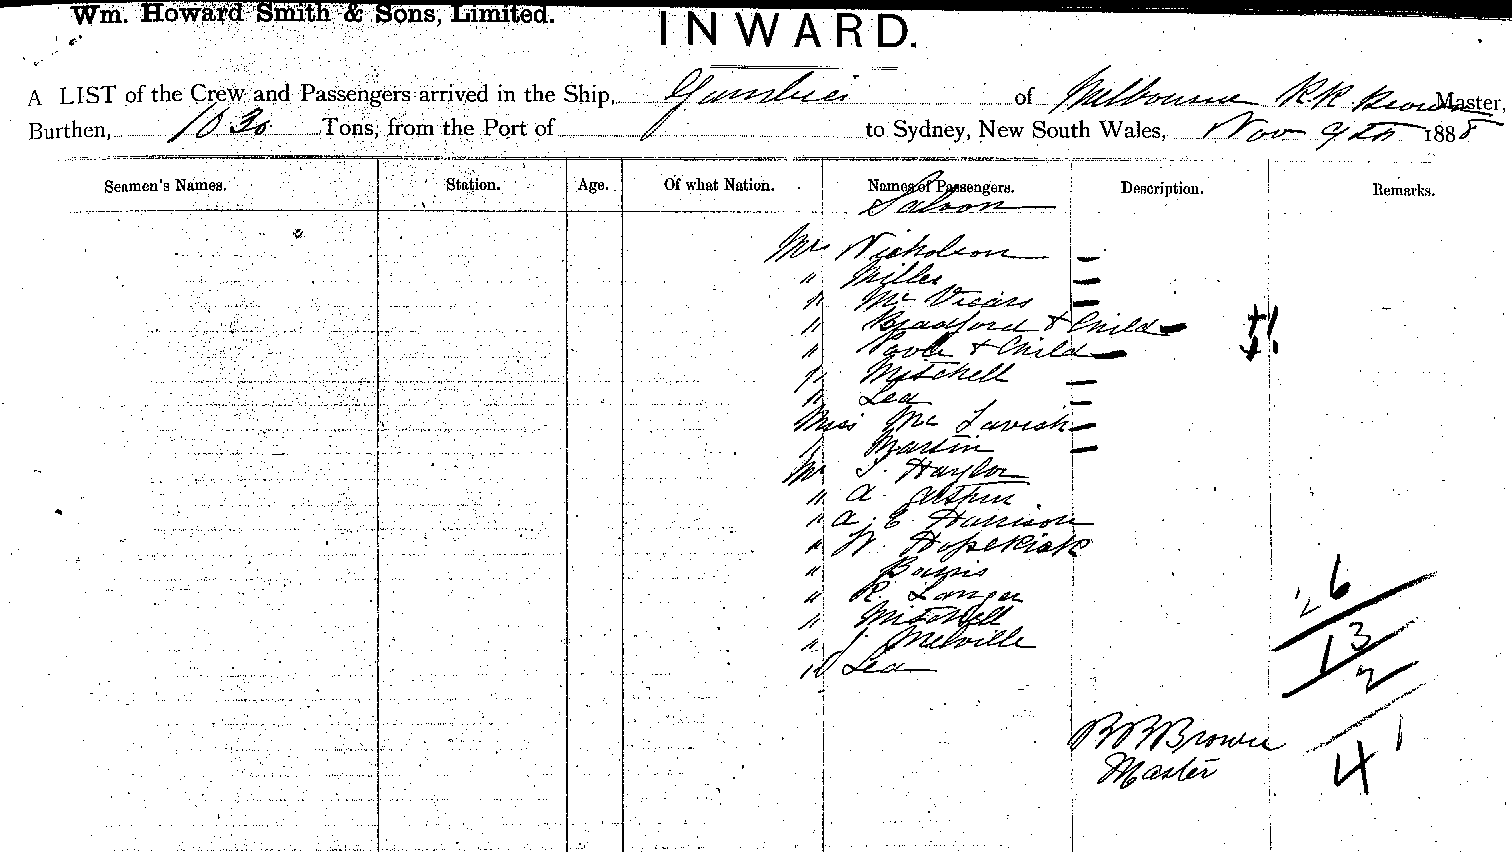 Wm. Howard Smith & Sons, Limited.
INWARD.
A LIST of the Crew and Passengers arrived in the Ship, Gambier of Melbourne Brown Master,
Burthen, Tons, from the Port of to Sydney, New South Wales, Nov 9th 1888
Seamen's Names. Station. Age. Of what Nation. Names of Passengers. Description. Remarks.
Saloon
Mrs Nicholson
" Miller
" Mc Vicars
" Bradford & Child
" Poole & Child
" Mitchell
" Lea
Miss Mc Tavish
" Martin
Mr T. Haylor
" A.
" A. E. Harrison
" W. Hopekirk
"
" R.
" Mitchell
" J Melville
" Lea
26
13
2
41
Brown
Master